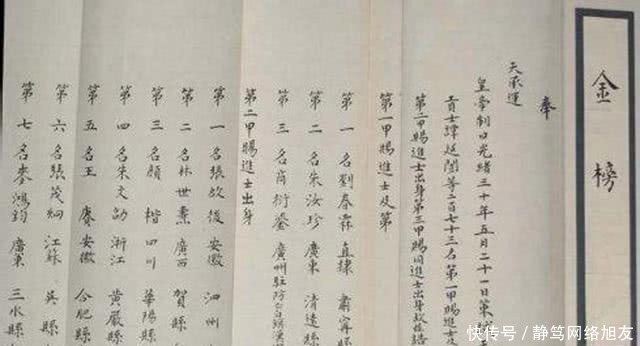 金榜
奉
天承運
皇帝制曰光緒三十年五月二十一日策
貢士譚延闓等二百七十三名第一甲賜進士及
第二甲賜進士出身第三甲賜同進士出身故茲誥
第一甲賜進士及第
第一名劉春霖 直隸 肅寧縣
第二名朱汝珍 廣東 清遠縣
第三名商衍鎏 廣州駐防正白旗漢
第二甲賜進士出身
第一名張啟後 安徽 泗州
第二名林世燾 廣西 賀縣
第三名顏楷 四川 華陽縣
第四名朱文劭 浙江 黃巖縣
第五名王賡 安徽 合肥縣
第六名張茂炯 江蘇 吳縣
第七名麥鴻鈞 廣東 三水縣
快传号 / 静笃网络旭友